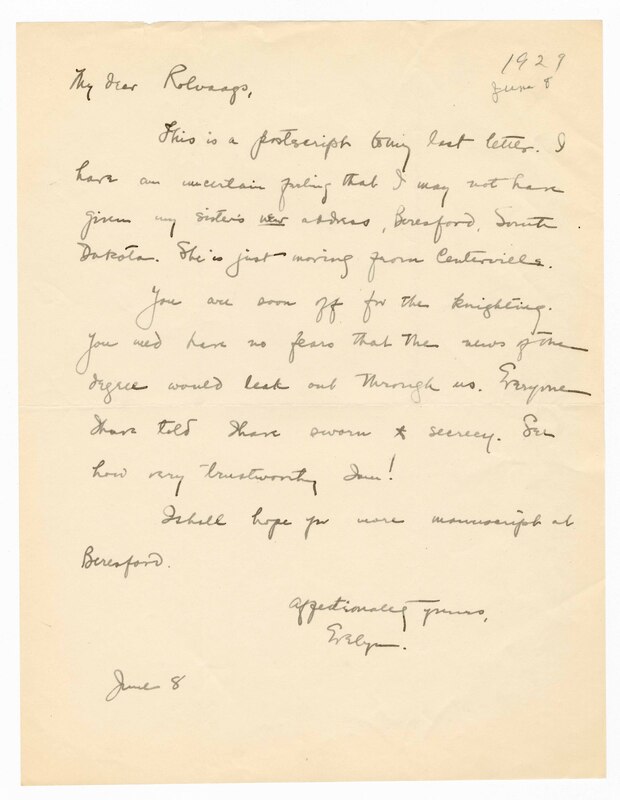 1929
June 8
My dear Rolvaags,
This is a postscript to my last letter. I
have an uncertain feeling that I may not have
given my sister's new address, Beresford, South
Dakota. She is just moving from Centerville.
You are soon off for the knighting.
You need have no fears that the news of the
degree would leak out through us. Everyone
I have told I have sworn to secrecy. See
how very trustworthy I am!
I shall hope for more manuscript at
Beresford.
Affectionately yours,
Evelyn.
June 8